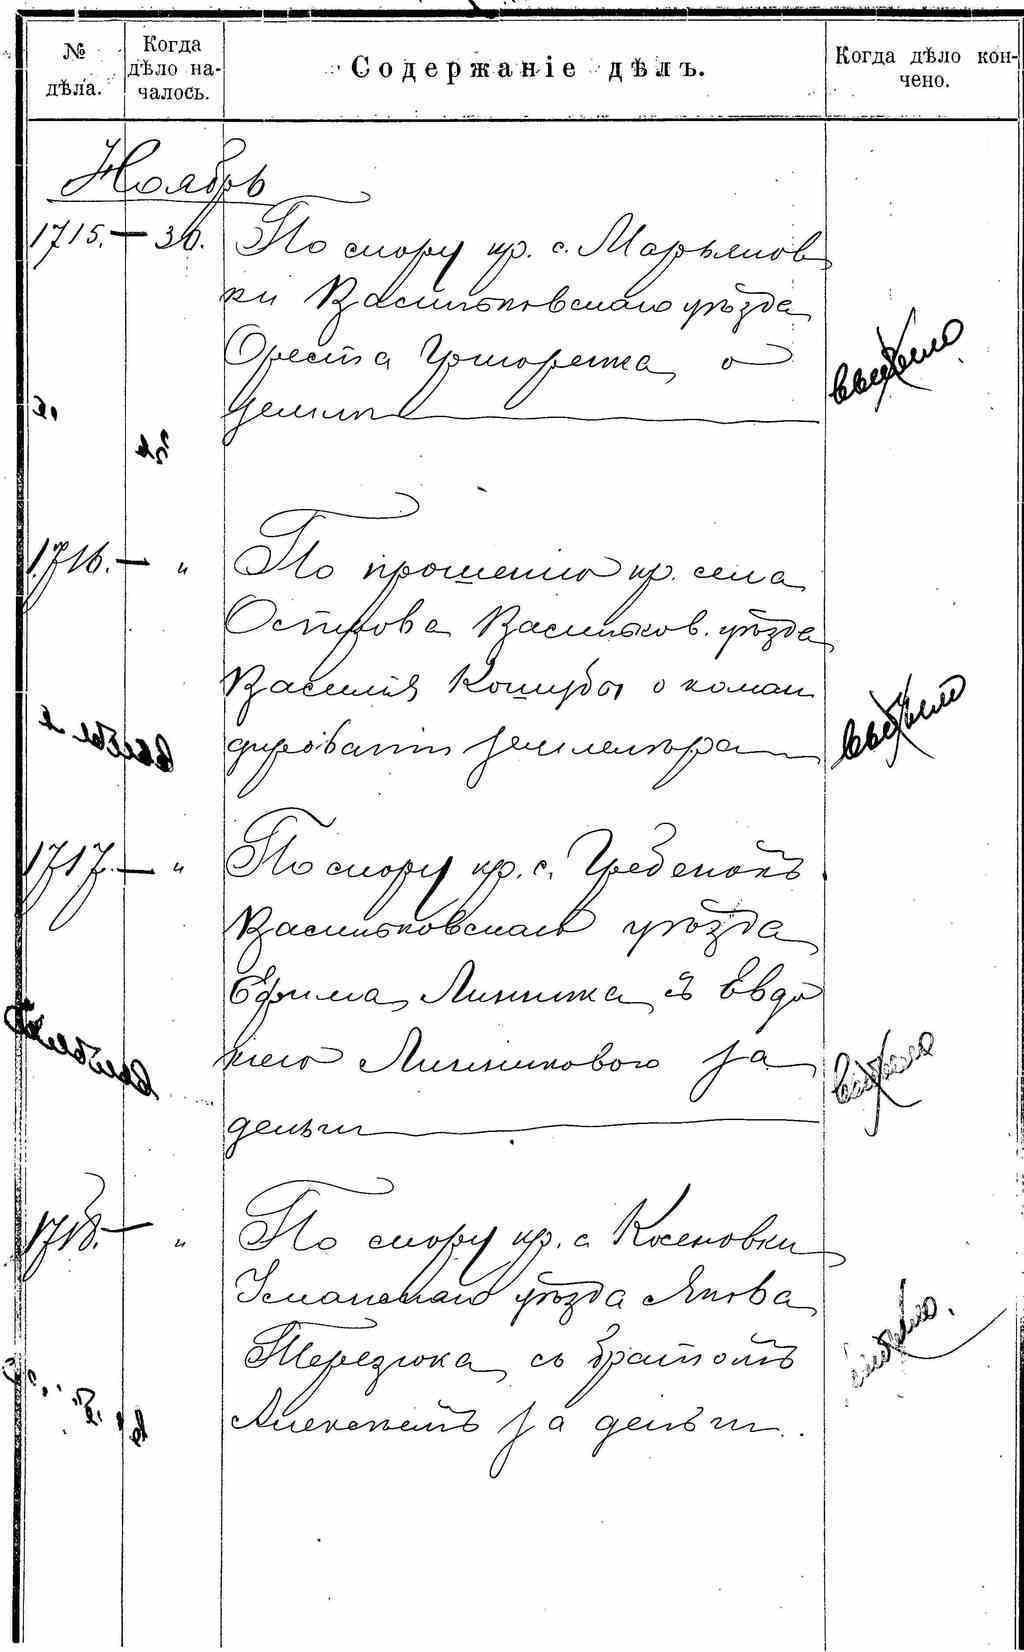 № дѣла.
Когда дѣло на-
чалось.
Содержаніе дѣлъ.
Когда дѣло кон-
чено.
Ноябрь
1715. — 30. По спору кр. с. Марьянов
ки Васильковскаго уѣзда
Ореста Григоренка о
землѣ
1716. — " По прошенію кр. села
Острова Васильков. уѣзда
Василія Коцюбы о коман
дированіи землемѣра
1717. — " По спору кр. с. Гребенокъ
Васильковскаго уѣзда
Ефима Линника съ Евдо
кіею Линниковою за
деньги
1718. — " По спору кр. с. Косеновки
Уманскаго уѣзда Якова
Терезюка съ братомъ
Алексѣемъ за деньги.